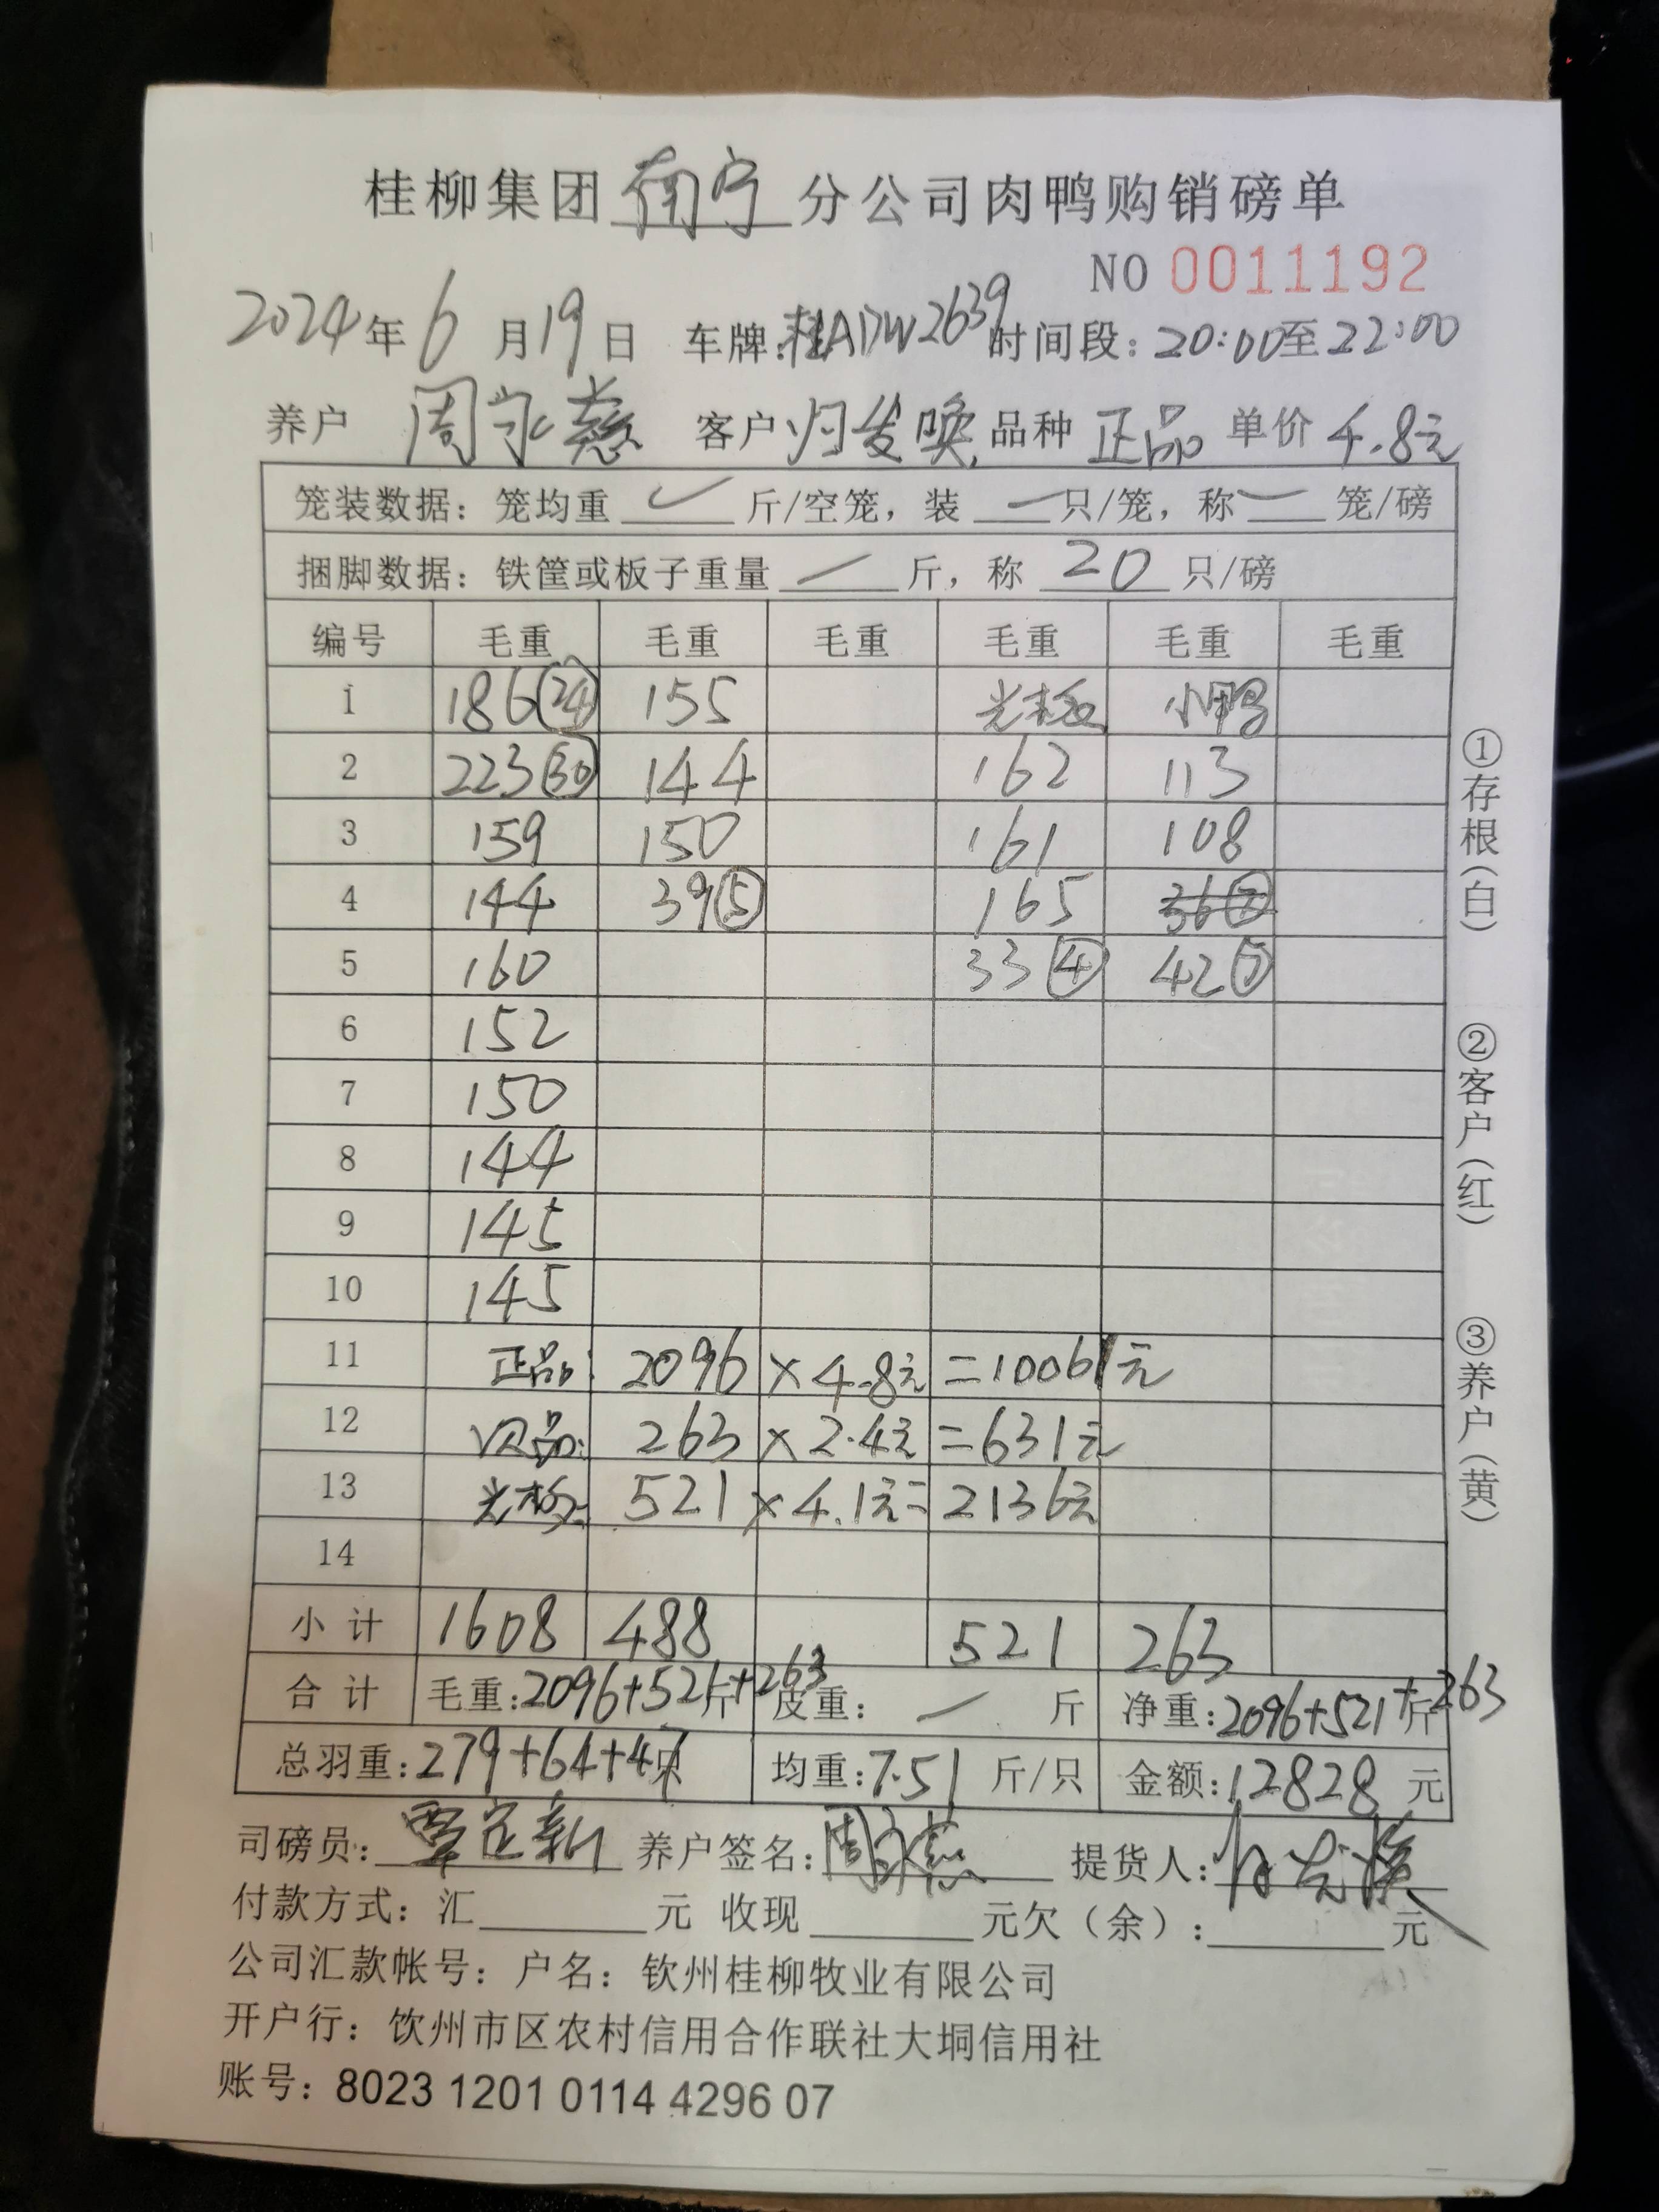 桂柳集团南宁分公司肉鸭购销磅单
NO 0011192
2024年6月19日 车牌:桂ADW2639 时间段:20:00至22:00
养户 周永慈 客户 归发唤 品种 正品 单价 4.8元
笼装数据:笼均重 斤/空笼,装 只/笼,称 笼/磅
捆脚数据:铁筐或板子重量 斤,称 20 只/磅
编号 毛重 毛重 毛重 毛重 毛重 毛重
1 186(24) 155 光板 小鸭
2 223(30) 144 162 113
3 159 150 161 108
4 144 39(5) 165 36
5 160 33(4) 42(7)
6 152
7 150
8 144
9 145
10 145
11 正品: 2096 × 4.8元 = 10061元
12 次品: 263 × 2.4元 = 631元
13 光板: 521 × 4.1元 = 2136元
14
小计 1608 488 521 263
合计 毛重:2096+521+263斤 皮重: 一 斤 净重:2096+521+263斤
总羽重:279+64+47只 均重:7.51斤/只 金额:12828元
司磅员: 养户签名:周永慈 提货人:
付款方式:汇 元 收现 元欠(余): 元
公司汇款帐号:户名:钦州桂柳牧业有限公司
开户行:饮州市区农村信用合作联社大垌信用社
账号:8023 1201 0114 4296 07
①存根(白)
②客户(红)
③养户(黄)